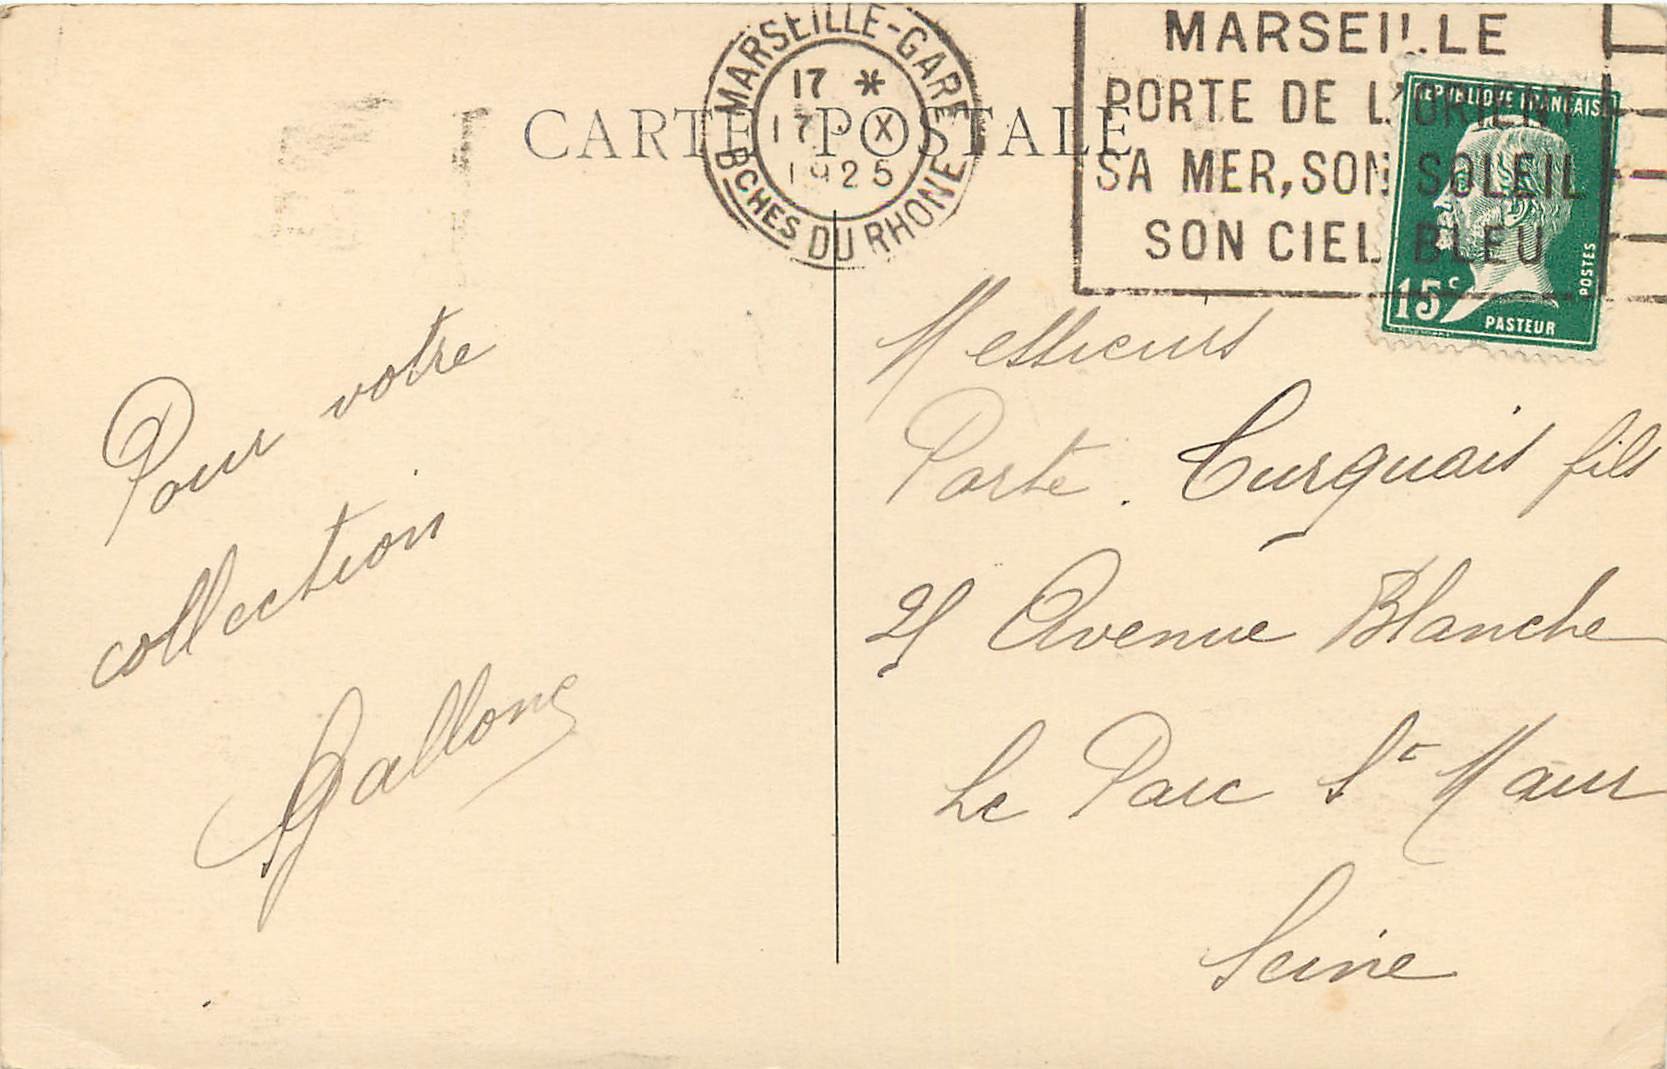 CARTE POSTALE
MARSEILLE-GARE
17 *
17 X
1925
BCHES DU RHONE
MARSEILLE
PORTE DE L'ORIENT
SA MER, SON SOLEIL
SON CIEL BLEU
REPUBLIQUE FRANCAISE
15c
PASTEUR
POSTES
Pour votre
collection
Gallone
Messieurs
Porte. Turquais fils
21 Avenue Blanche
Le Parc St Maur
Seine